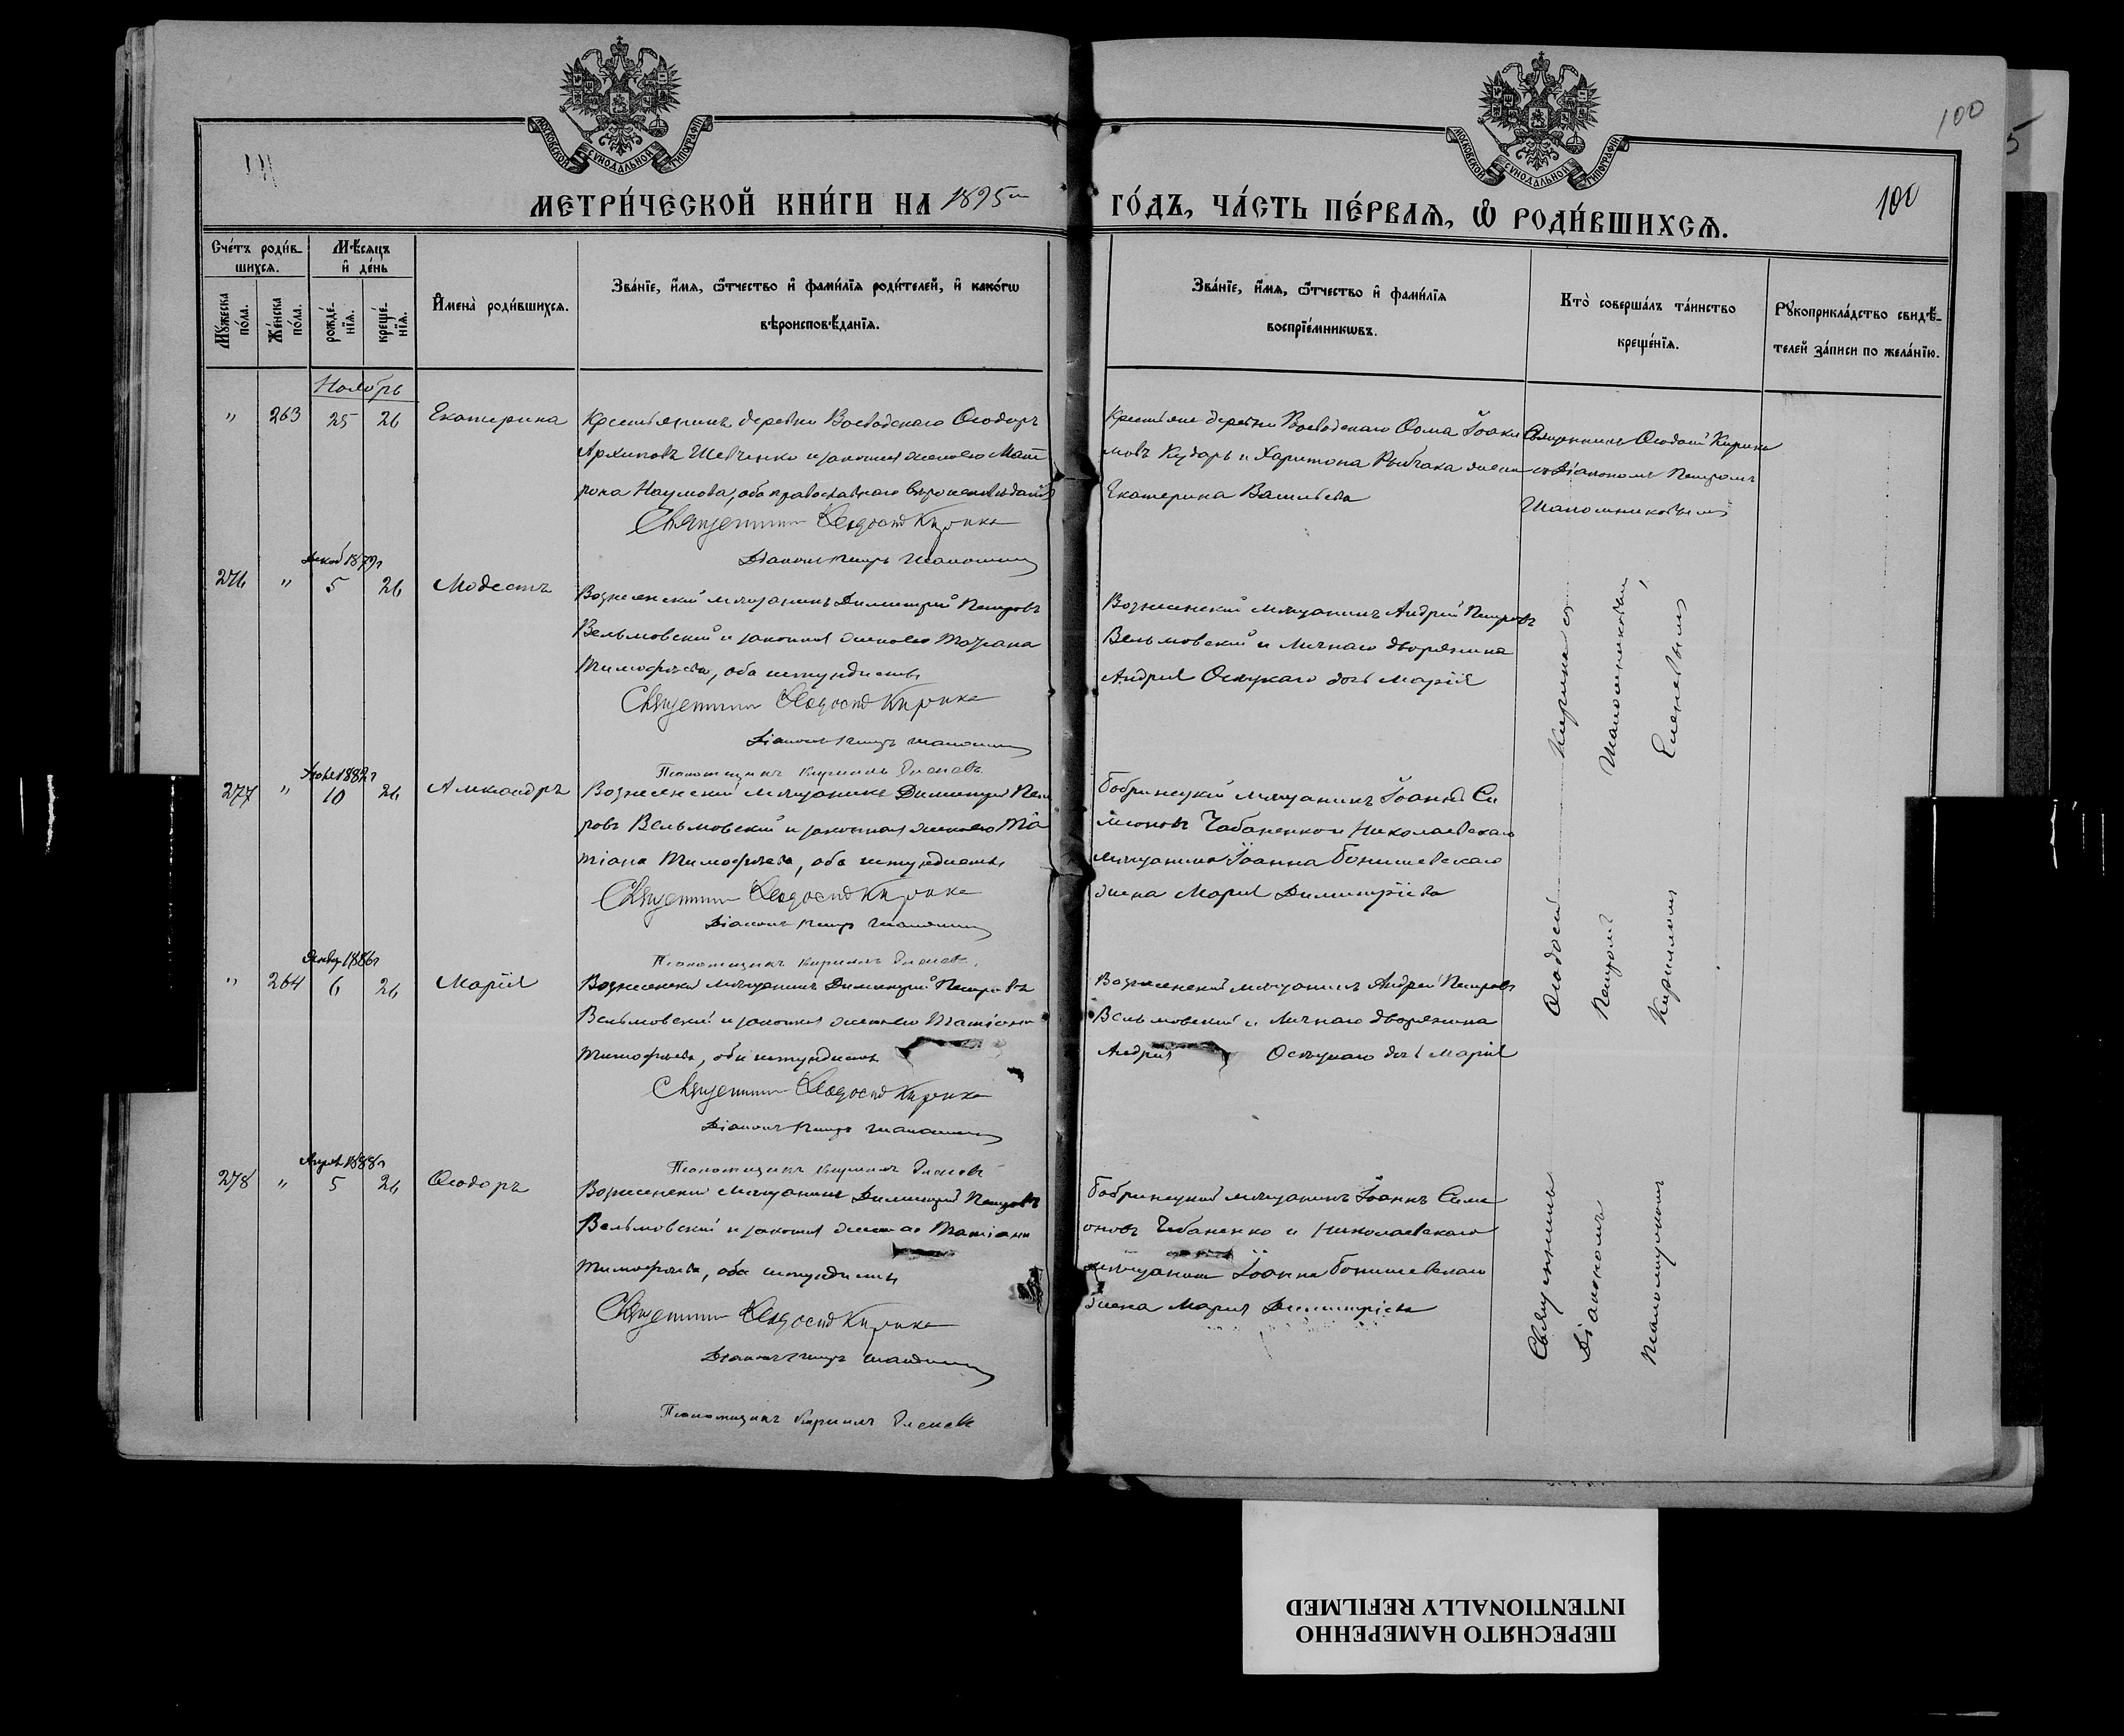 100
5
МОСКОВСКОЙ СѴНОДАЛЬНОЙ ТИПОГРАФІИ
МОСКОВСКОЙ СѴНОДАЛЬНОЙ ТИПОГРАФІИ
МЕТРИ́ЧЕСКОЙ КНИ́ГИ НА 1895 ГО́ДЪ, ЧА́СТЬ ПЕ́РВАѦ, Ѽ РОДИ́ВШИХСѦ.
100
Сче́тъ роди́в-
шихсѧ.
Мѣ́сѧцъ
и҆ де́нь
Мꙋ́жеска по́ла.
Же́нска по́ла.
рожде́-нїѧ.
креще́-нїѧ.
И҆мена̀ роди́вшихсѧ.
Зва́нїе, и҆́мѧ, ѻ҆́тчество и҆ фами́лїѧ роди́телей, и҆ како́гѡ
вѣроисповѣ́данїѧ.
Зва́нїе, и҆́мѧ, ѻ҆́тчество и҆ фами́лїѧ
воспрїе́мникѡвъ.
Кто̀ соверша́лъ та́инство
креще́нїѧ.
Рꙋкоприкла́дство свидѣ́-
телей за́писи по жела́нїю.
Ноябрь
" 263 25 26 Екатерина
Крестьянинъ деревни Воеводскаго Ѳеодоръ
Архиповъ Шевченко и законная жена его Мат
рона Наумова, оба православнаго вѣроисповѣданія
Священникъ Ѳеодосій Кирика
Діаконъ Петръ
Крестьяне деревни Воеводскаго Ѳома Іоаки
мовъ Кударь и Харитона Рыбчака жена
Екатерина Васильева
Священникъ Ѳеодосій Кирика
съ Діакономъ Петромъ
Шапошниковымъ
Декаб 1879г
276 " 5 26 Модестъ
Вознесенскій мѣщанинъ Димитрій Петровъ
Вельмовскій и законная жена его Татіана
Тимофѣева, оба штундисты
Священникъ Ѳеодосій Кирика
Діаконъ Петръ
Псаломщикъ Кириллъ Еленевъ
Вознесенскій мѣщанинъ Андрей Петровъ
Вельмовскій и личнаго дворянина
Андрея дочь Марія
277 " 10 26 Александръ
Вознесенскій мѣщанинъ Димитрій Пет
ровъ Вельмовскій и законная жена его Та
тіана Тимофѣева, оба штундисты
Священникъ Ѳеодосій Кирика
Діаконъ Петръ
Псаломщикъ Кириллъ Еленевъ
Бобринецкій мѣщанинъ Іоаннъ Си
меоновъ Чабаненко и Николаевскаго
мѣщанина Іоанна
жена Марія Димитріева
" 264 6 26 Марія
Вознесенскій мѣщанинъ Димитрій Петровъ
Вельмовскій и законная жена его Татіана
Тимофѣева, оба штундисты
Священникъ Ѳеодосій Кирика
Діаконъ Петръ
Псаломщикъ Кириллъ Еленевъ
Вознесенскій мѣщанинъ Андрей Петровъ
Вельмовскій и личнаго дворянина
Андрея дочь Марія
Апрѣль 1888г
278 " 5 26 Ѳеодоръ
Вознесенскій мѣщанинъ Димитрій Петровъ
Вельмовскій и законная жена его Татіана
Тимофѣева, оба штундисты
Священникъ Ѳеодосій Кирика
Діаконъ Петръ
Псаломщикъ Кириллъ Еленевъ
Бобринецкій мѣщанинъ Іоаннъ Симе
оновъ Чабаненко и Николаевскаго
мѣщанина Іоанна
жена Марія Димитріева
Священникъ Ѳеодосій Кирика съ
Діакономъ Петромъ Шапошниковымъ,
Псаломщикомъ Кирилломъ Еленевымъ
ПЕРЕСНЯТО НАМЕРЕННО
INTENTIONALLY REFILMED